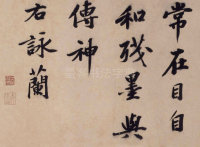 常在目自
和残墨與
傳神
右詠蘭